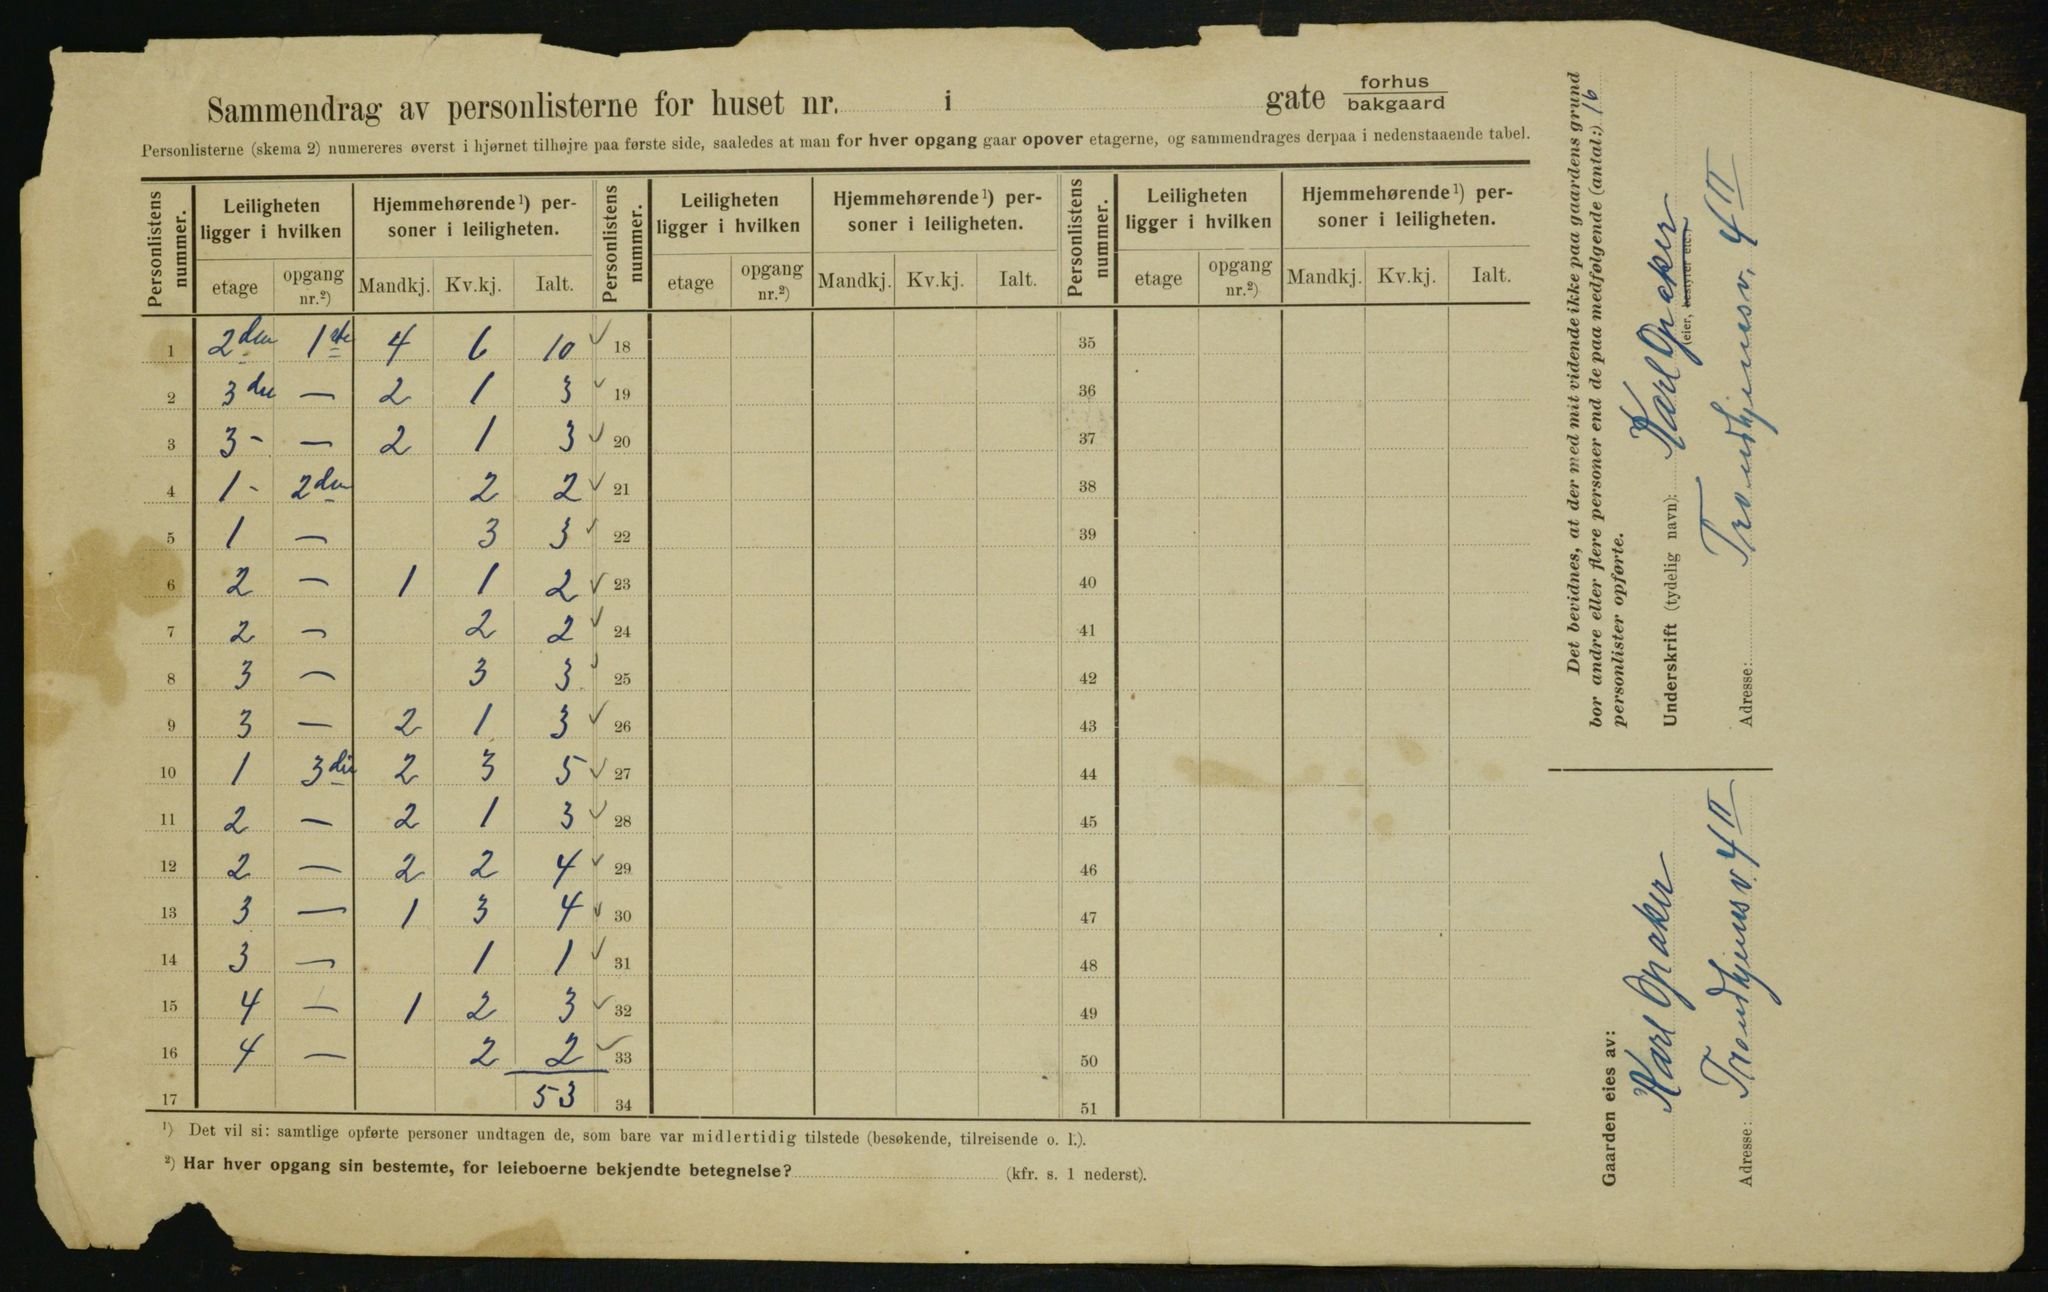 Sammendrag av personlisterne for huset nr. i gate forhus
bakgaard
Personlisterne (skema 2) numereres øverst i hjørnet tilhøjre paa første side, saaledes at man for hver opgang gaar opover etagerne, og sammendrages derpaa i nedenstaaende tabel.
Personlistens nummer. Leiligheten ligger i hvilken Hjemmehørende¹) personer i leiligheten. Personlistens nummer. Leiligheten ligger i hvilken Hjemmehørende¹) personer i leiligheten. Personlistens nummer. Leiligheten ligger i hvilken Hjemmehørende¹) personer i leiligheten.
etage opgang nr.²) Mandkj. Kv.kj. Ialt. etage opgang nr.²) Mandkj. Kv.kj. Ialt. etage opgang nr.²) Mandkj. Kv.kj. Ialt.
1 2den 1ste 4 6 10 ✓ 18 35
2 3die — 2 1 3 ✓ 19 36
3 3- — 2 1 3 ✓ 20 37
4 1- 2den 2 2 ✓ 21 38
5 1 — 3 3 ✓ 22 39
6 2 — 1 1 2 ✓ 23 40
7 2 — 2 2 ✓ 24 41
8 3 — 3 3 ✓ 25 42
9 3 — 2 1 3 ✓ 26 43
10 1 3die 2 3 5 ✓ 27 44
11 2 — 2 1 3 ✓ 28 45
12 2 — 2 2 4 ✓ 29 46
13 3 — 1 3 4 ✓ 30 47
14 3 — 1 1 ✓ 31 48
15 4 — 1 2 3 ✓ 32 49
16 4 — 2 2 ✓ 33 50
17 53 34 51
¹) Det vil si: samtlige opførte personer undtagen de, som bare var midlertidig tilstede (besøkende, tilreisende o. l.).
²) Har hver opgang sin bestemte, for leieboerne bekjendte betegnelse? (kfr. s. 1 nederst).
Det bevidnes, at der med mit vidende ikke paa gaardens grund
bor andre eller flere personer end de paa medfølgende (antal:) 16
personlister opførte.
Underskrift (tydelig navn): Karl Opaker
(eier, bestyrer etc.)
Adresse: Trondhjemsv. 4 II
Gaarden eies av:
Karl Opaker
Adresse: Trondhjemsv 4 II